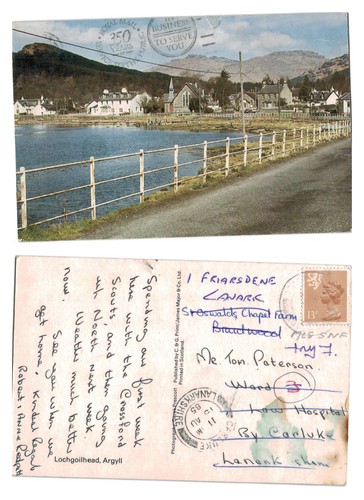 ROYAL MAIL
250 YEARS
BUSINESS
TO SERVE
YOU
Spending our first week
here with the Crossford
Scouts, and then going
up North next week
Weather much better
now.
See you when we
get home, Kindest Regards
Robert & Anne
Lochgoilhead, Argyll
Published by C. & G. Print; James Major & Co. Ltd.
Printed in Scotland.
1 FRIARSDENE
LANARK
St Oswalds Chapel Farm
Braidwood
ML8 5NF
try 7.
Mr. Tom. Paterson.
Ward 3
Law Hospital
By Carluke
Lanark shire
13P
LANARKSHIRE
11 AU